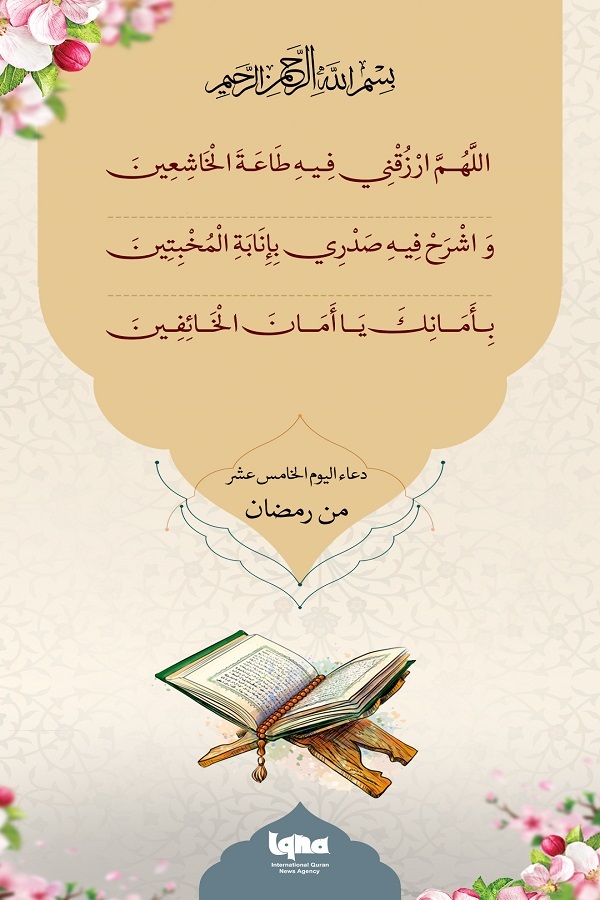 بِسْمِ اللَّهِ الرَّحْمَنِ الرَّحِيمِ
اللَّهُمَّ ارْزُقْنِي فِيهِ طَاعَةَ الْخَاشِعِينَ
وَ اشْرَحْ فِيهِ صَدْرِي بِإِنَابَةِ الْمُخْبِتِينَ
بِأَمَانِكَ يَا أَمَانَ الْخَائِفِينَ
دعاء اليوم الخامس عشر
من رمضان
iqna
International Quran
News Agency